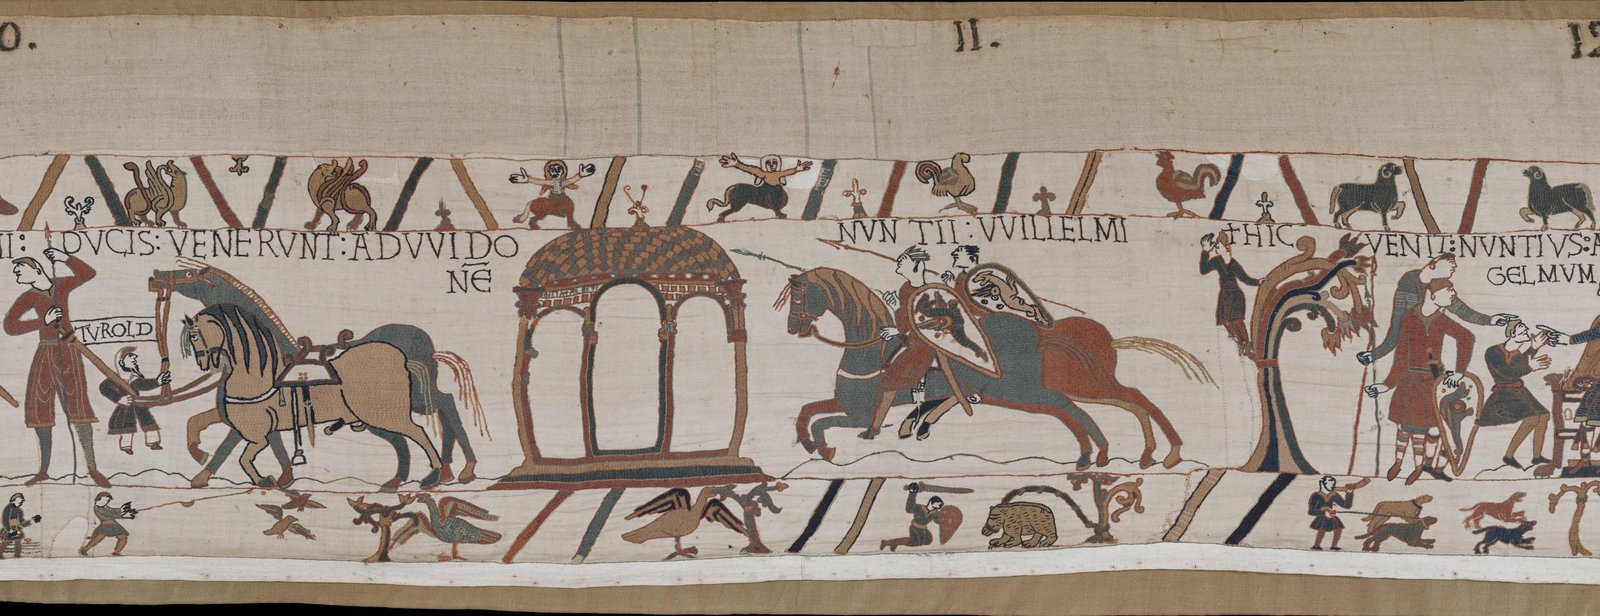 0.
11.
12
NI: DVCIS: VENERVNT: AD VVIDO
NĒ
TVROLD
NVNTII: VVILLELMI
† HIC VENIT: NVNTIVS: A
GELMVM